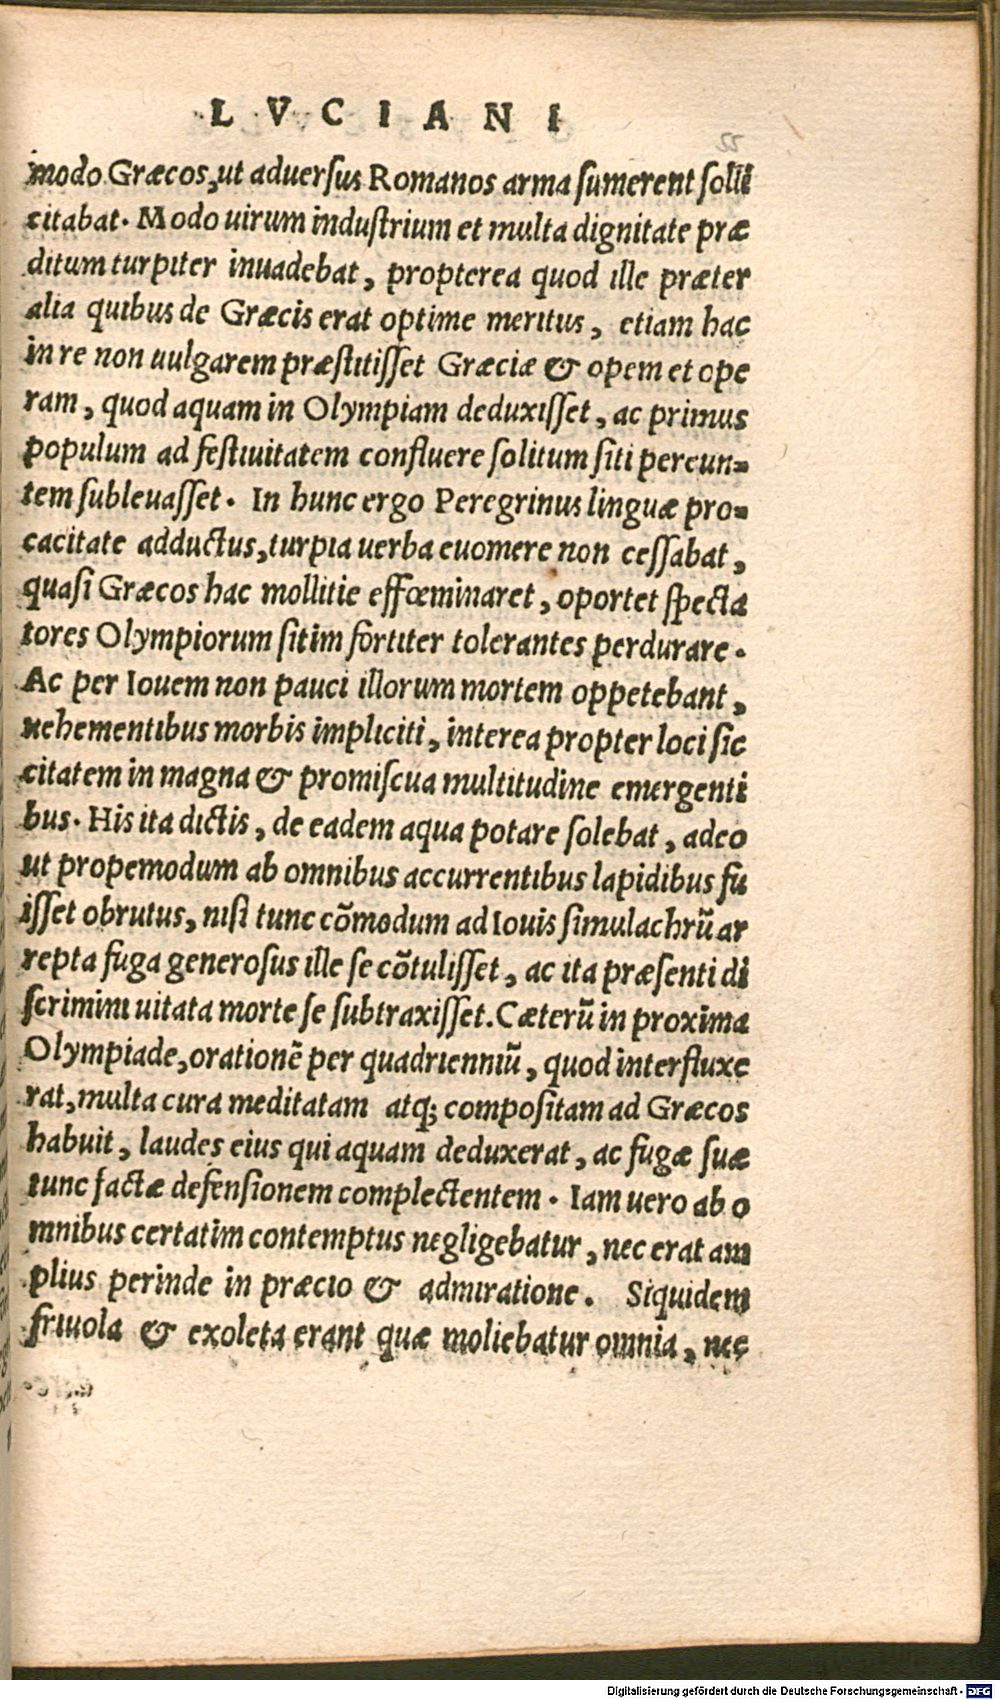 LVCIANI
22
modo Græcos, ut aduersus Romanos arma sumerent solli
citabat. Modo uirum industrium et multa dignitate præ
ditum turpiter inuadebat, propterea quod ille præter
alia quibus de Græcis erat optime meritus, etiam hac
in re non uulgarem præstitisset Græciæ & opem et ope
ram, quod aquam in Olympiam deduxisset, ac primus
populum ad festiuitatem confluere solitum siti pereun=
tem subleuasset. In hunc ergo Peregrinus linguæ pro=
cacitate adductus, turpia uerba euomere non cessabat,
quasi Græcos hac mollitie effœminaret, oportet specta
tores Olympiorum sitim fortiter tolerantes perdurare.
Ac per Iouem non pauci illorum mortem oppetebant,
uehementibus morbis impliciti, interea propter loci sic
citatem in magna & promiscua multitudine emergenti
bus. His ita dictis, de eadem aqua potare solebat, adeo
ut propemodum ab omnibus accurrentibus lapidibus fu
isset obrutus, nisi tunc cōmodum ad Iouis simulachrū ar
repta fuga generosus ille se cōtulisset, ac ita præsenti di
scrimini uitata morte se subtraxisset. Cæterū in proxima
Olympiade, orationē per quadrienniū, quod interfluxe
rat, multa cura meditatam atq; compositam ad Græcos
habuit, laudes eius qui aquam deduxerat, ac fugæ suæ
tunc factæ defensionem complectentem. Iam uero ab o
mnibus certatim contemptus negligebatur, nec erat am
plius perinde in præcio & admiratione. Siquidem
friuola & exoleta erant quæ moliebatur omnia, nec
Digitalisierung gefördert durch die Deutsche Forschungsgemeinschaft - DFG